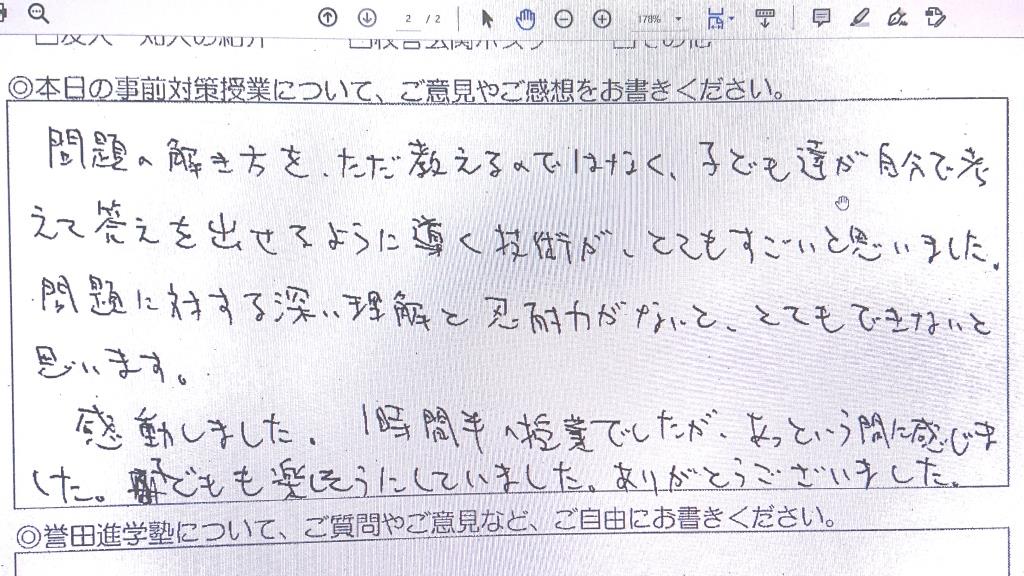 2 / 2
178%
□友人・知人の紹介 □校舎公開ポスター □その他
◎本日の事前対策授業について、ご意見やご感想をお書きください。
問題の解き方を、ただ教えるのではなく、子ども達が自分で考
えて答えを出せるように導く技術が、とてもすごいと思いました。
問題に対する深い理解と忍耐力がないと、とてもできないと
思います。
感動しました。1時間半の授業でしたが、あっという間に感じま
した。子どもも楽しそうにしていました。ありがとうございました。
◎誉田進学塾について、ご質問やご意見など、ご自由にお書きください。